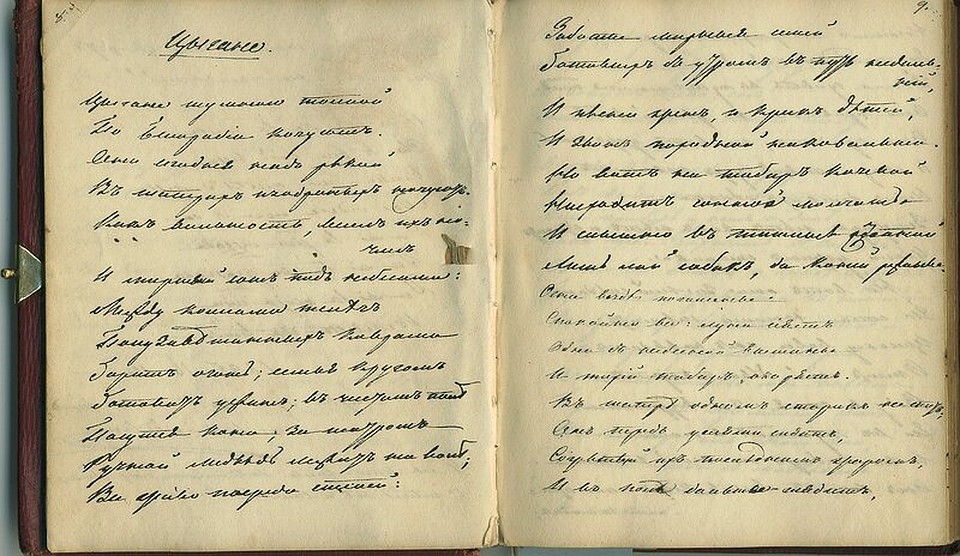 Цыгане.
Цыгане шумною толпой
По Бессарабіи кочуютъ.
Они сегодня надъ рѣкой
Въ шатрахъ изодранныхъ ночуютъ.
Какъ вольность, веселъ ихъ но-
члегъ
И мирный сонъ подъ небесами:
Между колесами телѣгъ
Полузавѣшанныхъ коврами
Горитъ огонь; семья кругомъ
Готовитъ ужинъ; въ чистомъ полѣ
Пасутся кони; за шатромъ
Ручной медвѣдь лежитъ на волѣ;
Все живо посреди степей:
9.
Заботы мирныя семей
Готовыхъ съ утромъ въ путь недаль-
ній,
И пѣсни женъ, и крикъ дѣтей,
И звонъ походной наковальни.
Но вотъ на таборъ кочевой
Нисходитъ сонное молчанье
И слышно въ тишинѣ степной
Лишь лай собакъ, да коней ржанье.
Огни вездѣ погашены.
Спокойно все: луна сіяетъ
Одна съ небесной вышины
И тихій таборъ озаряетъ.
Въ шатрѣ одномъ старикъ не спитъ;
Онъ передъ углями сидитъ,
Согрѣтый ихъ послѣднимъ жаромъ,
И въ поле дальнее глядитъ,